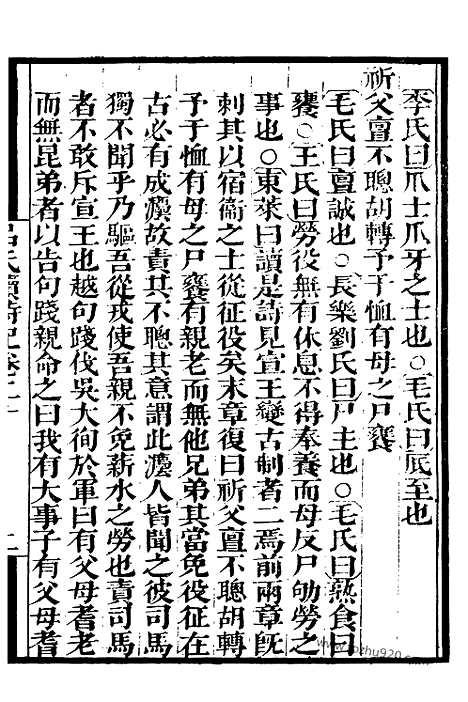 李氏曰爪士爪牙之士也○毛氏曰底至也
祈父亶不聰胡轉予于恤有母之尸饔
毛氏曰亶誠也○長樂劉氏曰尸主也○毛氏曰熟食曰
饔○王氏曰勞役無有休息不得奉養而母反尸劬勞之
事也○東萊曰讀是詩見宣王變古制者二焉前兩章旣
刺其以宿衞之士從征役矣末章復曰祈父亶不聰胡轉
予于恤有母之尸饔有親老而無他兄弟其當免役征在
古必有成灋故責其不聰其意謂此灋人皆聞之彼司馬
獨不聞乎乃驅吾從戎使吾親不免薪水之勞也責司馬
者不敢斥宣王也越句踐伐吳大徇於軍曰有父母耆老
而無昆弟者以告句踐親命之曰我有大事子有父母耆
呂氏讀詩記卷二十
www.bozhu920.com